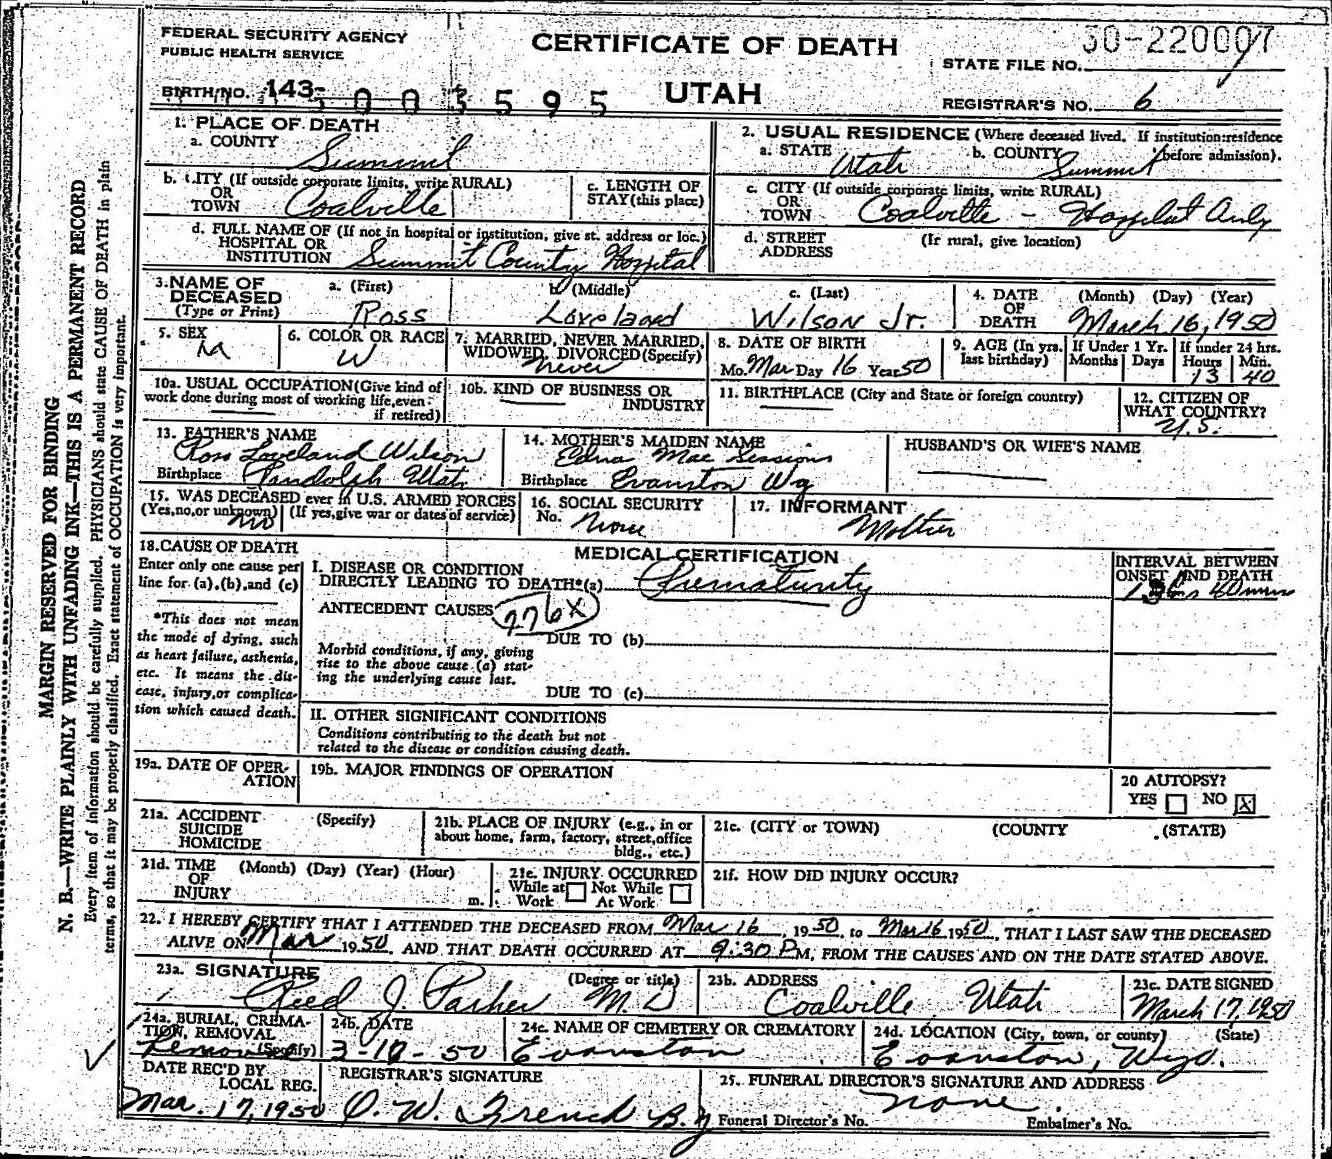 FEDERAL SECURITY AGENCY
PUBLIC HEALTH SERVICE
CERTIFICATE OF DEATH
UTAH
STATE FILE NO. 50-220007
REGISTRAR'S NO. 6
BIRTH NO. 143-5003595
1. PLACE OF DEATH
a. COUNTY Summit
b. CITY (If outside corporate limits, write RURAL)
OR
TOWN Coalville
c. LENGTH OF
STAY (this place)
d. FULL NAME OF (If not in hospital or institution, give st. address or loc.)
HOSPITAL OR
INSTITUTION Summit County Hospital
2. USUAL RESIDENCE (Where deceased lived. If institution: residence
before admission).
a. STATE Utah b. COUNTY Summit
c. CITY (If outside corporate limits, write RURAL)
OR
TOWN Coalville - Hospital Only
d. STREET (If rural, give location)
ADDRESS
3. NAME OF a. (First) b. (Middle) c. (Last)
DECEASED
(Type or Print) Ross Loveland Wilson Jr.
4. DATE (Month) (Day) (Year)
OF
DEATH March 16, 1950
5. SEX
M
6. COLOR OR RACE
W
7. MARRIED, NEVER MARRIED,
WIDOWED, DIVORCED (Specify)
Never
8. DATE OF BIRTH
Mo. Mar Day 16 Year 50
9. AGE (In yrs. If Under 1 Yr. If under 24 hrs.
last birthday) Months Days Hours Min.
13 40
10a. USUAL OCCUPATION (Give kind of
work done during most of working life, even
if retired)
10b. KIND OF BUSINESS OR
INDUSTRY
11. BIRTHPLACE (City and State or foreign country)
12. CITIZEN OF
WHAT COUNTRY?
U.S.
13. FATHER'S NAME
Ross Loveland Wilson
Birthplace Randolph Utah
14. MOTHER'S MAIDEN NAME
Edna Mae Sessions
Birthplace Evanston Wy
HUSBAND'S OR WIFE'S NAME
15. WAS DECEASED ever in U.S. ARMED FORCES
(Yes, no, or unknown) (If yes, give war or dates of service)
no
16. SOCIAL SECURITY
No. None
17. INFORMANT
Mother
18. CAUSE OF DEATH
Enter only one cause per
line for (a), (b), and (c)
*This does not mean
the mode of dying, such
as heart failure, asthenia,
etc. It means the dis-
ease, injury, or complica-
tion which caused death.
MEDICAL CERTIFICATION
I. DISEASE OR CONDITION
DIRECTLY LEADING TO DEATH* (a) Prematurity
INTERVAL BETWEEN
ONSET AND DEATH
13 hrs 40 mins
ANTECEDENT CAUSES 776X
DUE TO (b)
Morbid conditions, if any, giving
rise to the above cause (a) stat-
ing the underlying cause last.
DUE TO (c)
II. OTHER SIGNIFICANT CONDITIONS
Conditions contributing to the death but not
related to the disease or condition causing death.
19a. DATE OF OPER-
ATION
19b. MAJOR FINDINGS OF OPERATION
20 AUTOPSY?
YES NO X
21a. ACCIDENT (Specify)
SUICIDE
HOMICIDE
21b. PLACE OF INJURY (e.g., in or
about home, farm, factory, street, office
bldg., etc.)
21c. (CITY or TOWN) (COUNTY (STATE)
21d. TIME (Month) (Day) (Year) (Hour)
OF
INJURY m.
21e. INJURY OCCURRED
While at Not While
Work At Work
21f. HOW DID INJURY OCCUR?
22. I HEREBY CERTIFY THAT I ATTENDED THE DECEASED FROM Mar 16, 1950, to Mar 16 1950, THAT I LAST SAW THE DECEASED
ALIVE ON Mar 1950, AND THAT DEATH OCCURRED AT 9:30 P M, FROM THE CAUSES AND ON THE DATE STATED ABOVE.
23a. SIGNATURE (Degree or title)
Reed J Parker M.D
23b. ADDRESS
Coalville, Utah
23c. DATE SIGNED
March 17, 1950
24a. BURIAL, CREMA-
TION, REMOVAL
(Specify)
24b. DATE
24c. NAME OF CEMETERY OR CREMATORY
Evanston
24d. LOCATION (City, town, or county) (State)
Evanston, Wyo.
DATE REC'D BY
LOCAL REG.
Mar. 17, 1950
REGISTRAR'S SIGNATURE
O. W. French
25. FUNERAL DIRECTOR'S SIGNATURE AND ADDRESS
none.
Funeral Director's No. Embalmer's No.
MARGIN RESERVED FOR BINDING
N. B.—WRITE PLAINLY WITH UNFADING INK—THIS IS A PERMANENT RECORD
Every item of information should be carefully supplied. PHYSICIANS should state CAUSE OF DEATH in plain
terms, so that it may be properly classified. Exact statement of OCCUPATION is very important.